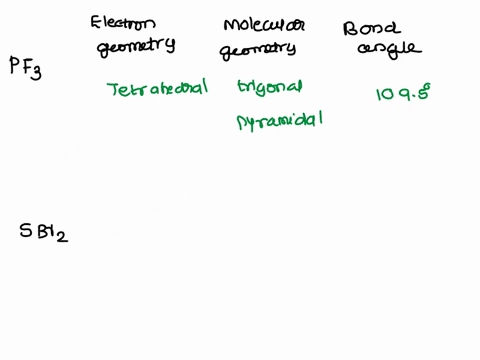 Electron geometry
Molecular geometry
Bond angle
PF3
Tetrahedral
trigonal pyramidal
109.5°
SBr2